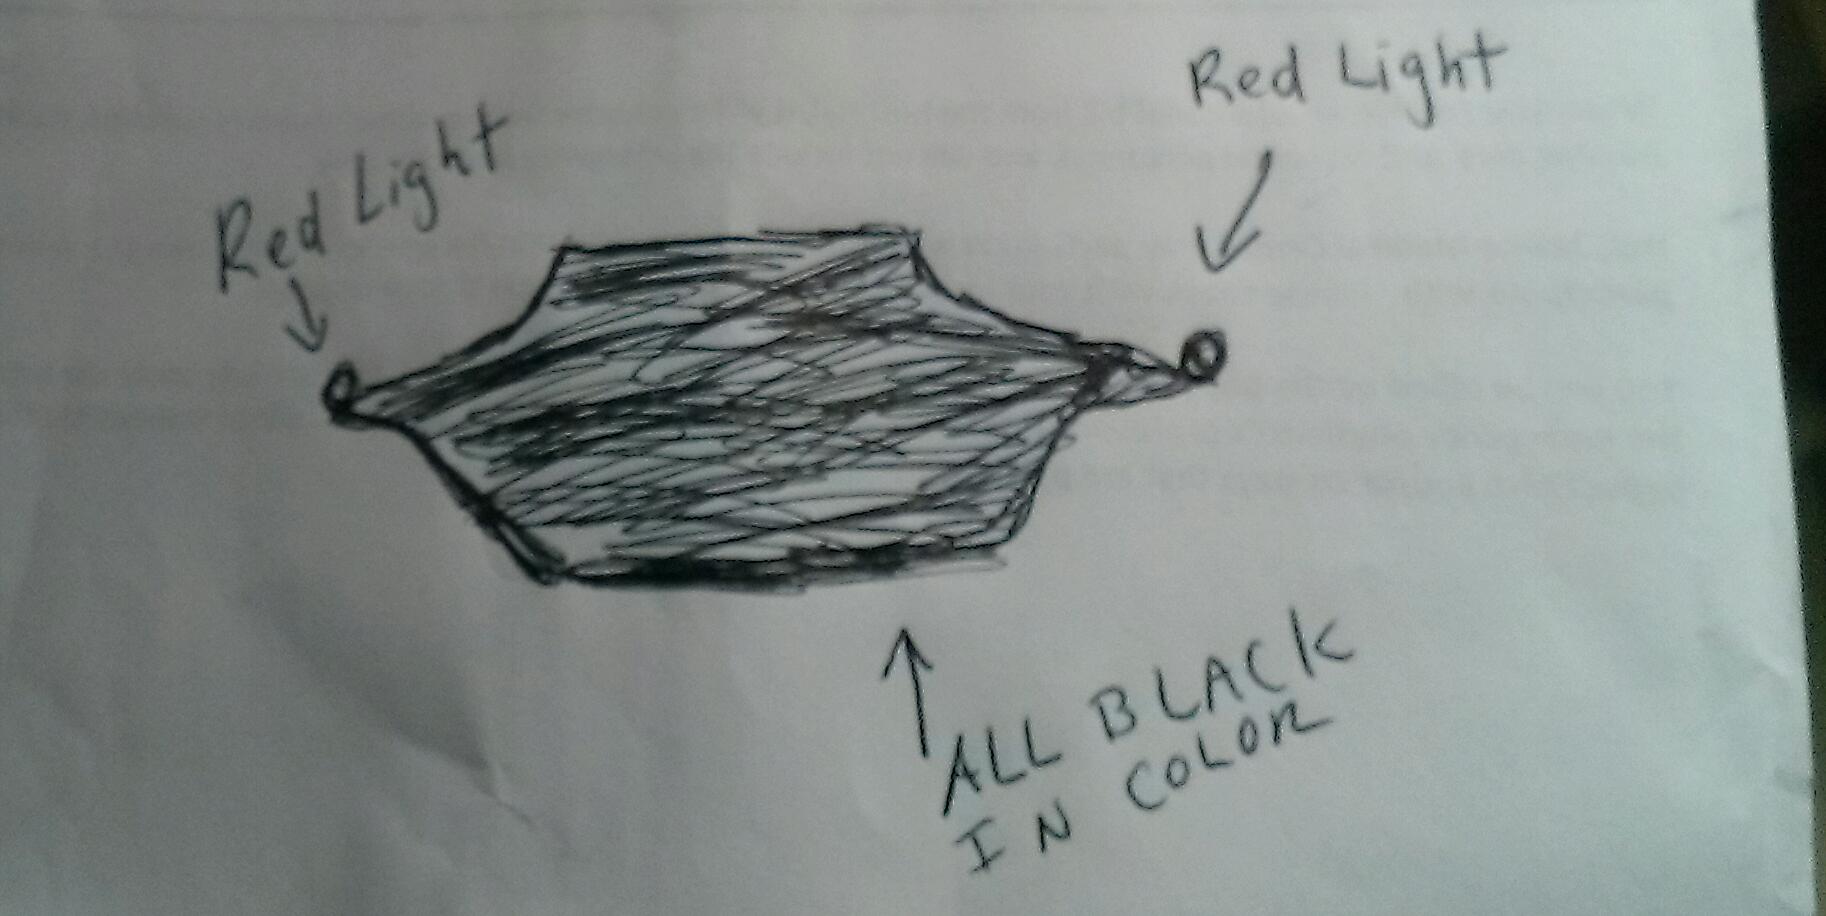 Red Light
Red Light
ALL BLACK
IN COLOR